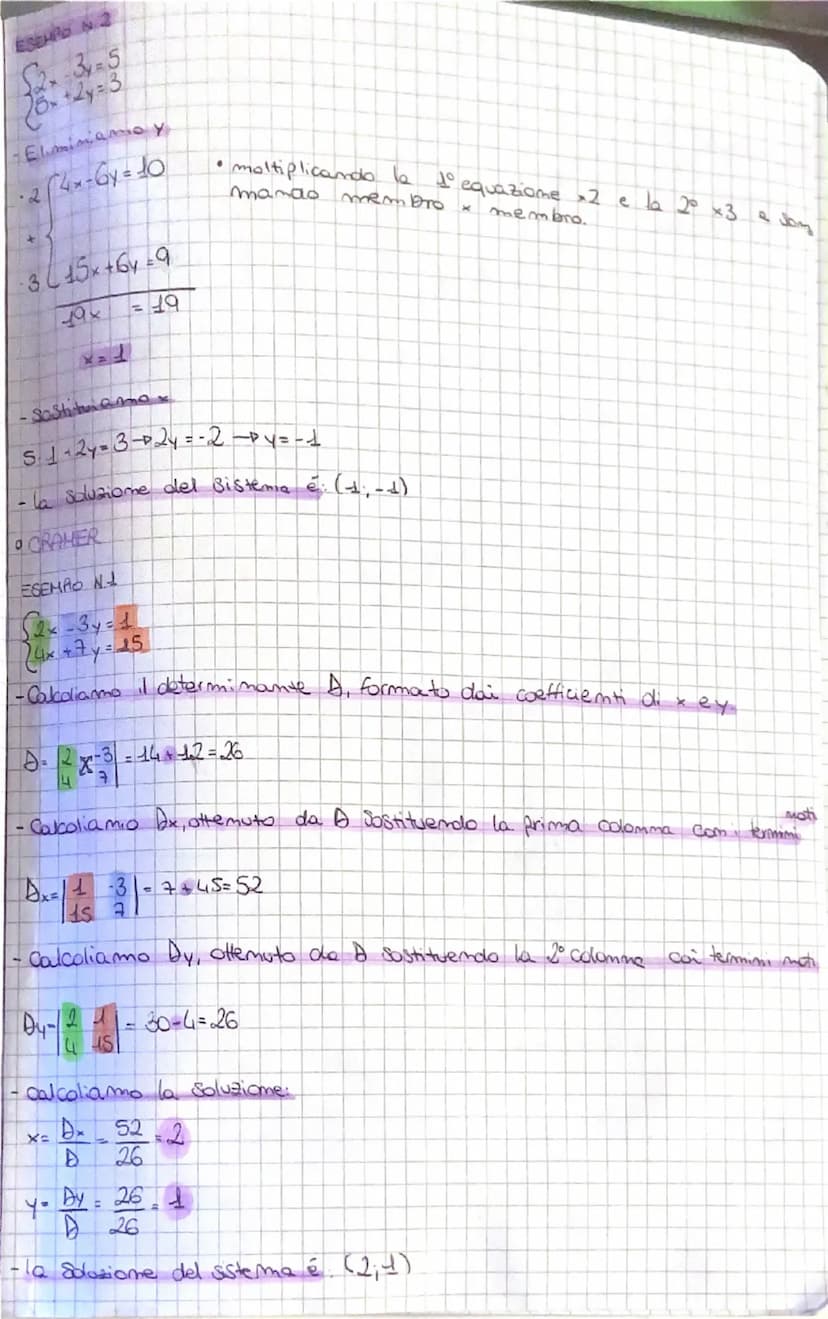 ESEMPIO N.2
{2x-3y=5
{5x+2y=3
- Eliminiamo y
·2 {4x-6y=10
• moltiplicando la 1º equazione ×2 e la 2º ×3 e som
mando membro × membro.
+
·3 {15x+6y=9
19x = 19
x=1
- Sostituiamo x
5·1+2y=3→2y=-2→y=-1
- la soluzione del sistema é: (1;-1)
° CRAMER
ESEMPIO N.1
{2x-3y=1
{4x+7y=15
- Calcoliamo il determinante D, formato dai coefficienti di x e y.
D= |2 -3| = 14+12=26
|4 7|
- Calcoliamo Dx, ottenuto da D sostituendo la prima colonna con i termini noti
Dx= |1 -3| = 7+45=52
|15 7|
- Calcoliamo Dy, ottenuto da D sostituendo la 2º colonna coi termini noti
Dy= |2 1| = 30-4=26
|4 15|
- calcoliamo la soluzione:
x= Dx/D = 52/26 = 2
y= Dy/D = 26/26 = 1
- la soluzione del sstema é: (2;1)